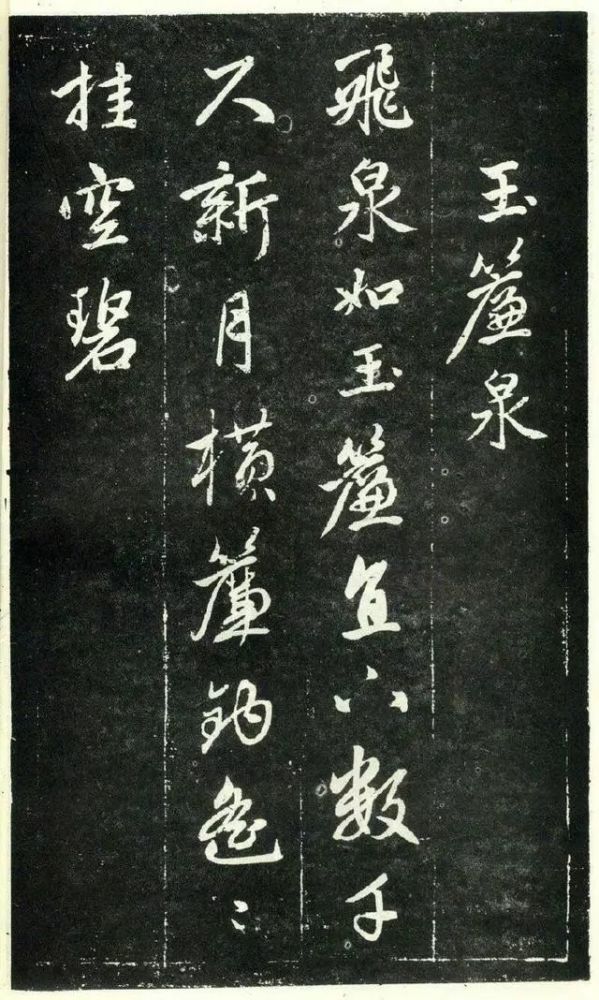 玉簾泉
飛泉如玉簾直下數千
尺新月橫簾鈎遙〻
挂空碧